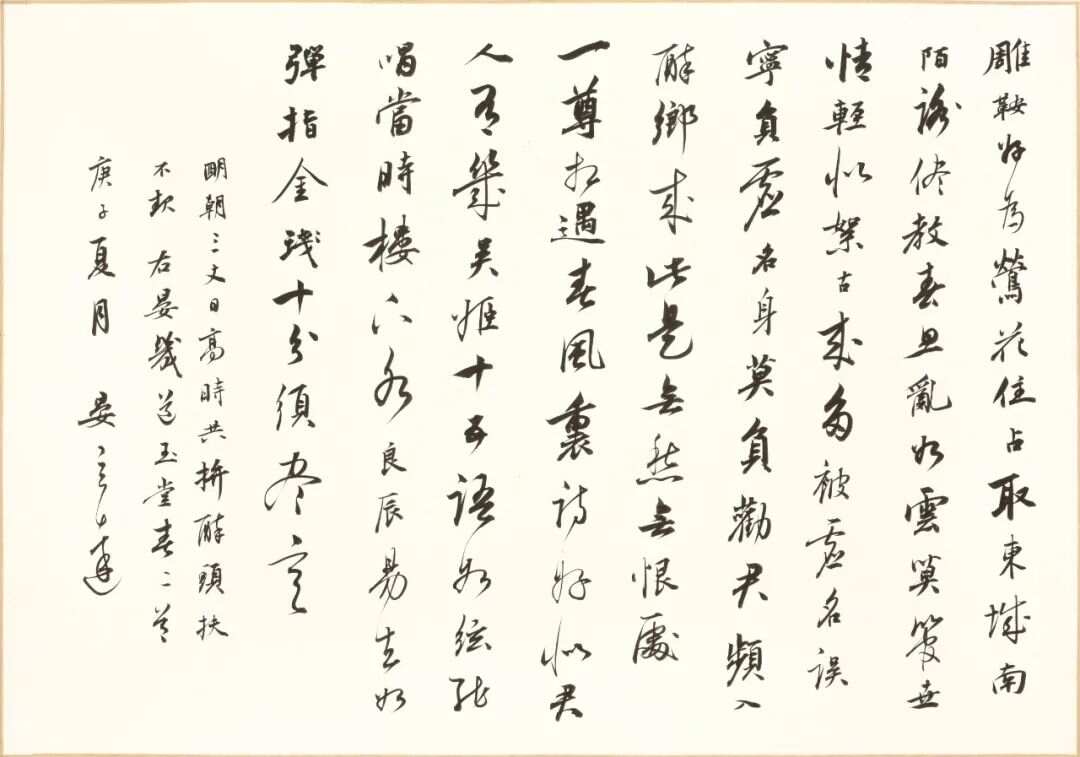 雕鞍好為鶯花住占取東城南
陌路侭教春思亂如雲莫管世
情輕似絮古來多被虛名誤
寧負虛名身莫負勸君頻入
醉鄉來此是無愁無恨處
一尊相遇春風裏詩好似君
人有幾吳姬十五語如絃能
唱當時樓下水良辰易去如
彈指金琖十分須盡意
明朝三丈日高時共拚醉頭扶
不起 右晏幾道玉堂春二首
庚子夏月 晏